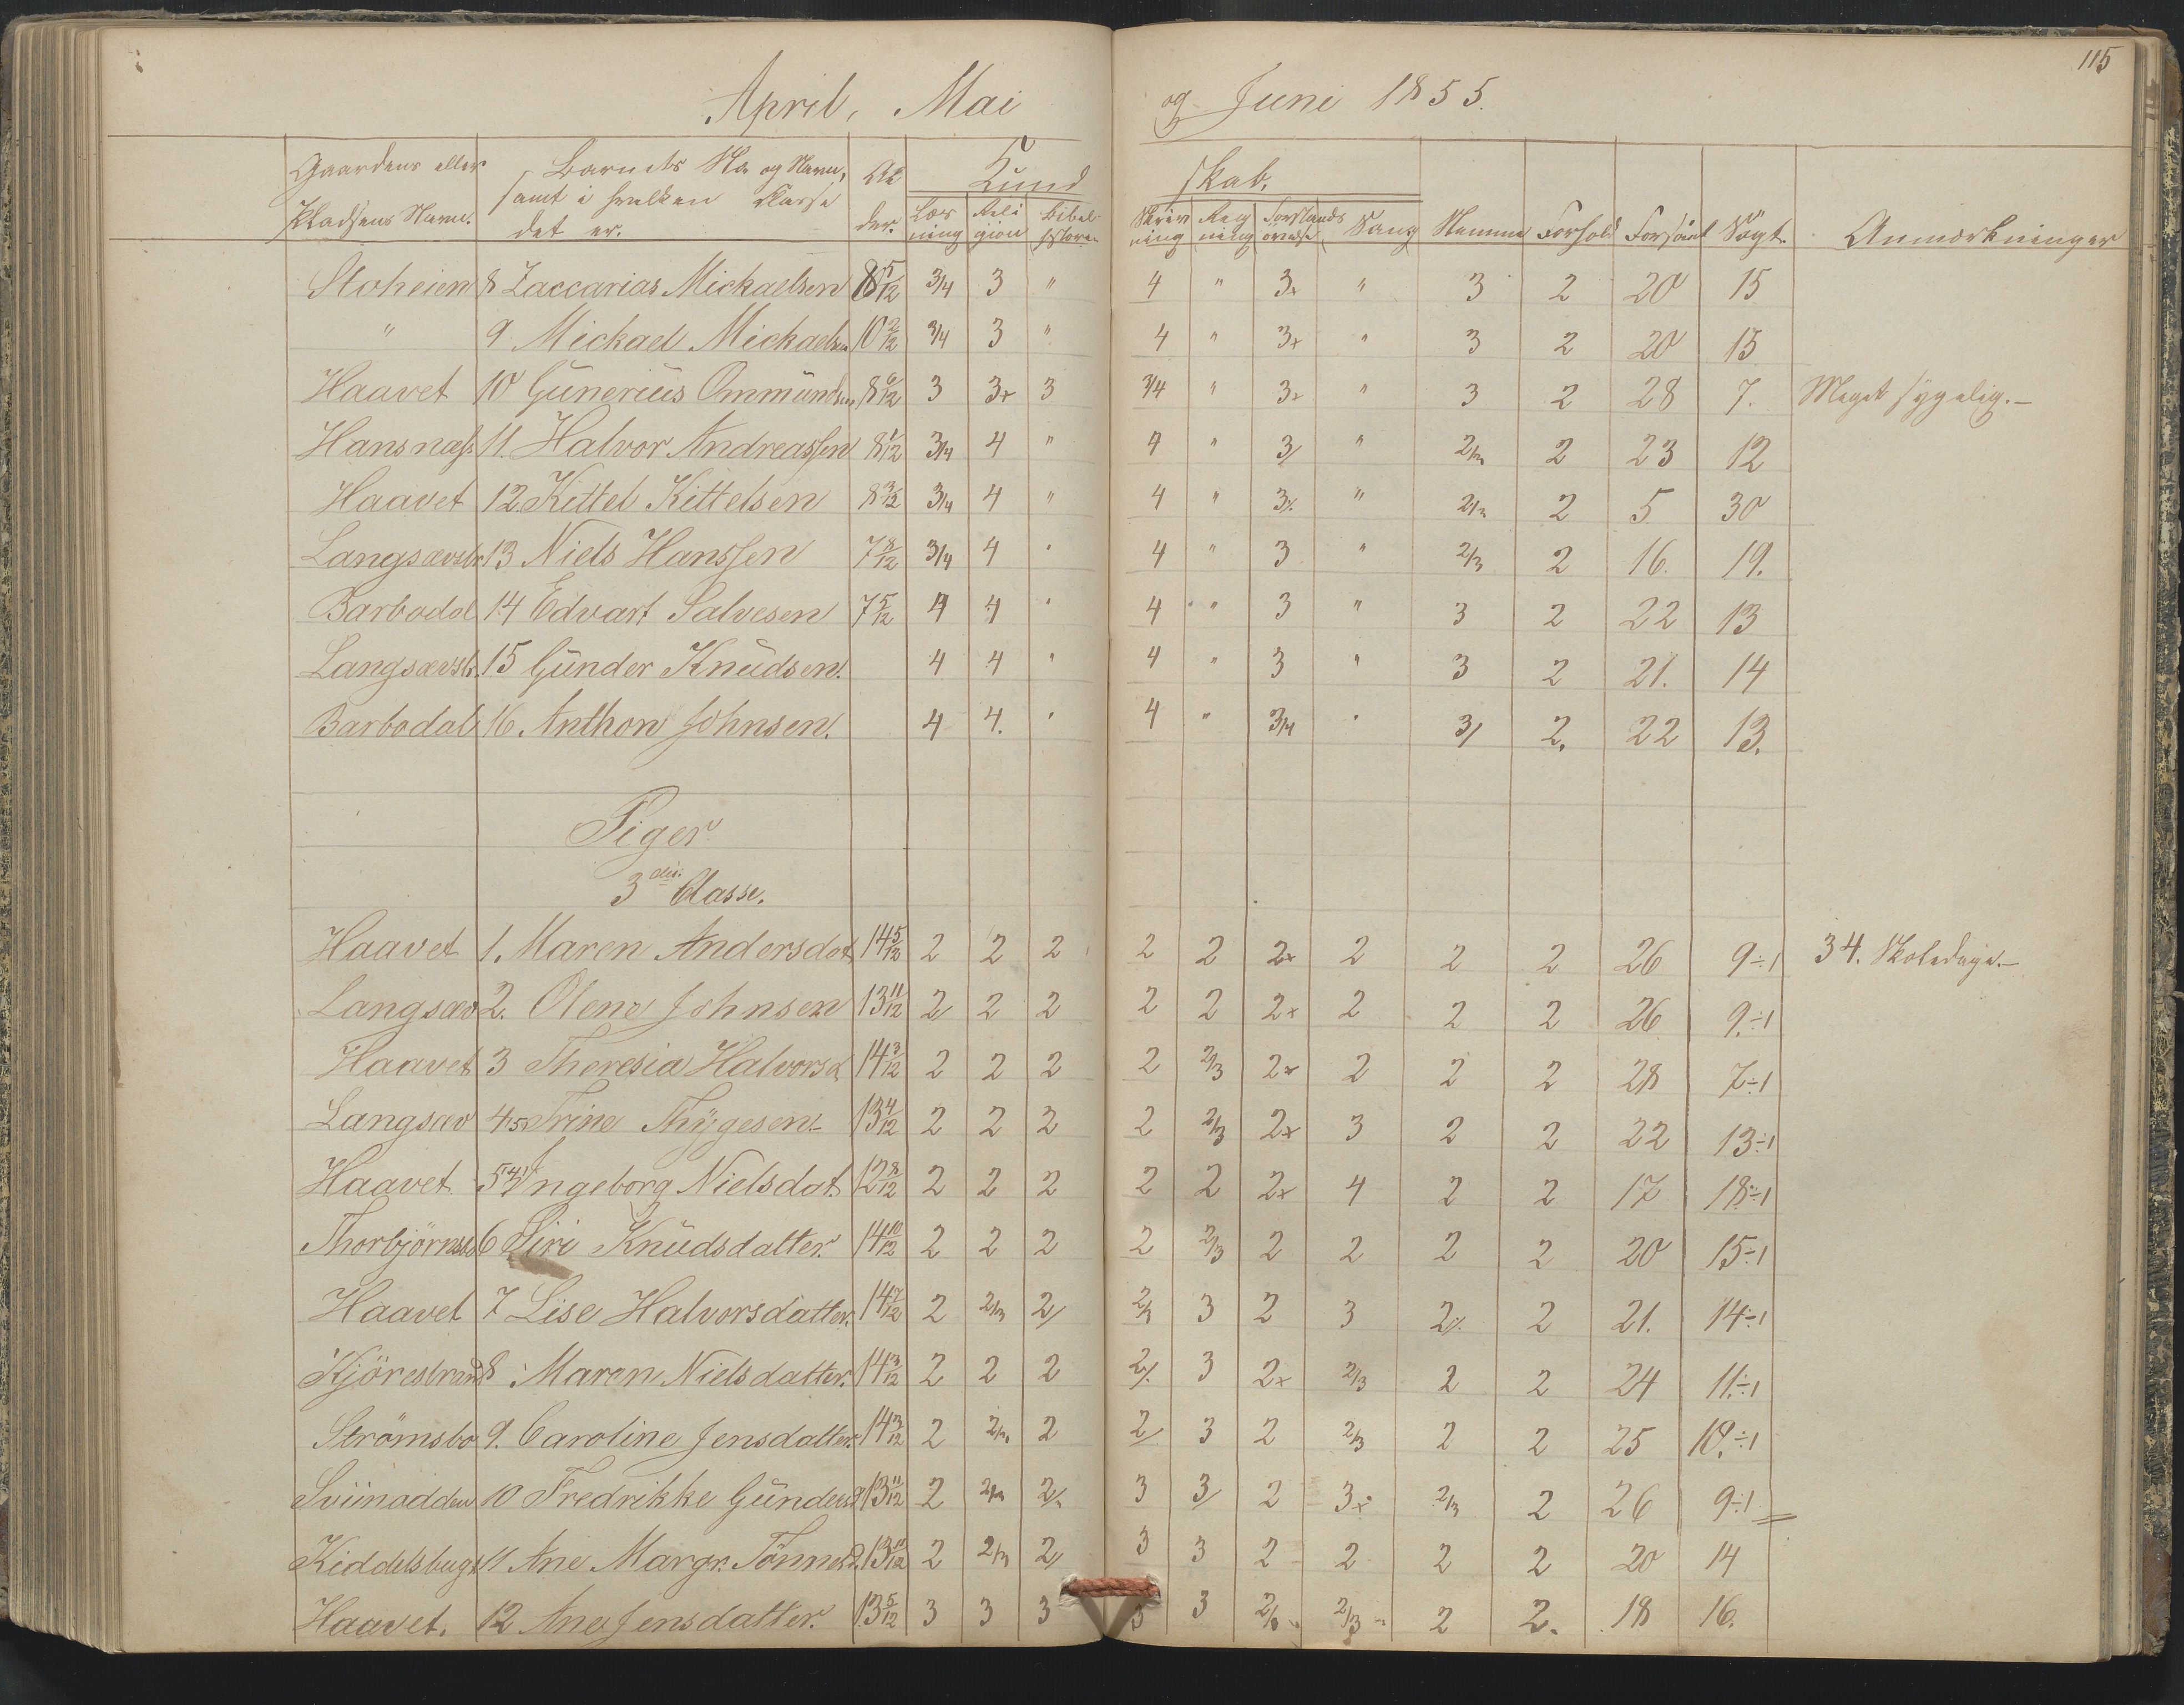 115
April, Mai og Juni 1855.
Gaardens eller Pladsens Navn. Barnets No og Navn, samt i hvilken Klasse det er. Alder. Kundskab. Hemme Forhold Forsömt Sögt. Anmærkninger
Læsning Religion Bibelhistorie Skrivning Regning Forstandsövelse Sang
Stoheien 8 Zaccarias Mickaelsen 8 5/12 3/4 3 " 4 " 3x " 3 2 20 15
" 9 Mickael Mickaelsen 10 2/12 3/4 3 " 4 " 3x " 3 2 20 15
Haavet 10 Günerius Ommündsen 8 6/12 3 3x 3 3/4 " 3x " 3 2 28 7. Meget sygelig.-
Hansnæss 11. Halvor Andreassen 8 1/12 3/4 4 " 4 " 3/ " 2/3 2 23 12
Haavet 12 Kittel Kittelsen 8 3/12 3/4 4 " 4 " 3/. " 2/3 2 5 30
Langsævstr 13 Niels Hanssen 7 8/12 3/4 4 " 4 " 3 " 2/3 2 16. 19.
Barbodal 14 Edvart Salvesen 7 5/12 4 4 " 4 " 3 " 3 2 22 13
Langsævstr. 15 Günder Knüdsen. 4 4 " 4 " 3 " 3 2 21. 14
Barbodal 16. Anthon Johnsen. 4 4. " 4 " 3/4 " 3/ 2. 22 13.
Piger
3die Classe.
Haavet 1. Maren Andersdot 14 5/12 2 2 2 2 2 2x 2 2 2 26 9÷1 34. Skoledage.-
Langsæv 2. Olene Johnsen 13 11/12 2 2 2 2 2 2x 2 2 2 26 9.÷1
Haavet 3 Theresia Halvorsd 14 3/12 2 2 2 2 2/3 2x 2 2 2 28 7÷1
Langsæv 4 5 Trine Thygesen- 13 4/12 2 2 2 2 2/3 2x 3 2 2 22 13÷1
Haavet 5 4 Ingeborg Nielsdat 12 8/12 2 2 2 2 2 2x 4 2 2 17 18÷1
Thorbjörnsb 6 Siri Knüdsdatter. 14 10/12 2 2 2 2 2/3 2 2 2 2 20 15÷1
Haavet 7 Lise Halvorsdatter. 14 7/12 2 2/3 2/ 2/3 3 2 3 2/. 2 21. 14÷1
Kjörestrand 8 Maren Nielsdatter. 14 3/12 2 2 2 2/. 3 2x 2/3 2 2 24 11.÷1
Strömsbo 9. Caroline Jensdatter. 14 3/12 2 2/3 2 2/ 3 2 2/3 2 2 25 10.÷1
Sviinodden 10 Fredrikke Günders 13 11/12 2 2/3 2/3 3 3/ 2 3x 2/3 2 26 9÷1
Kiddelsbugt 11 Ane Margr. Tönnesd. 13 11/12 2 2/3 2/ 3 3 2 2 2 2 20 14
Haavet. 12 Ane Jensdatter. 13 5/12 3 3 3 3 3 2/3 2/3 2 2. 18 16.